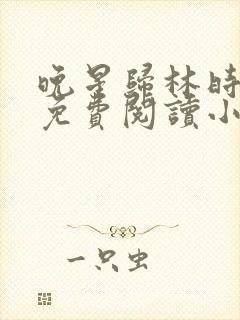 晚星歸林時
免費閱讀小
一只虫